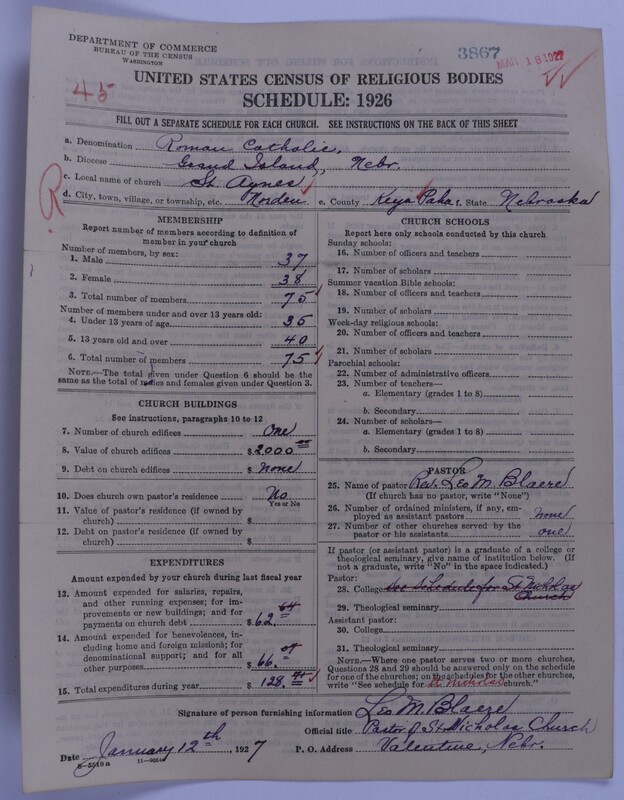 DEPARTMENT OF COMMERCE
BUREAU OF THE CENSUS
WASHINGTON
3867
MAR 18 1927
45
UNITED STATES CENSUS OF RELIGIOUS BODIES
SCHEDULE: 1926
FILL OUT A SEPARATE SCHEDULE FOR EACH CHURCH. SEE INSTRUCTIONS ON THE BACK OF THIS SHEET
a. Denomination Roman Catholic,
b. Diocese Grand Island, Nebr.
c. Local name of church St. Agnes
R
d. City, town, village, or township, etc. Norden e. County Keya Paha f. State Nebraska
MEMBERSHIP
Report number of members according to definition of
member in your church
Number of members, by sex:
1. Male 37
2. Female 38
3. Total number of members 75
Number of members under and over 13 years old:
4. Under 13 years of age 35
5. 13 years old and over 40
6. Total number of members 75
NOTE.—The total given under Question 6 should be
same as the total of males and females given under Question 3.
CHURCH BUILDINGS
See instructions, paragraphs 10 to 12
7. Number of church edifices One
8. Value of church edifices $ 2000
9. Debt on church edifices $ none
10. Does church own pastor's residence No
Yes or No
11. Value of pastor's residence (if owned by
church) $
12. Debt on pastor's residence (if owned by
church) $
EXPENDITURES
Amount expended by your church during last fiscal year
13. Amount expended for salaries, repairs,
and other running expenses; for im-
provements or new buildings; and for
payments on church debt $ 62.
14. Amount expended for benevolences,
including home and foreign missions; for
denominational support; and for all
other purposes $ 66.
15. Total expenditures during year $ 128.
CHURCH SCHOOLS
Report here only schools conducted by this church
Sunday schools:
16. Number of officers and teachers
17. Number of scholars
Summer vacation Bible schools:
18. Number of officers and teachers
19. Number of scholars
Week-day religious schools:
20. Number of officers and teachers
21. Number of scholars
Parochial schools:
22. Number of administrative officers
23. Number of teachers—
a. Elementary (grades 1 to 8)
b. Secondary
24. Number of scholars—
a. Elementary (grades 1 to 8)
b. Secondary
PASTOR
25. Name of pastor Rev. Leo M. Blaere
(If church has no pastor, write "None")
26. Number of ordained ministers, if any, em-
ployed as assistant pastors none
27. Number of other churches served by the
pastor or his assistants one
If pastor (or assistant pastor) is a graduate of a college or
theological seminary, give name of institution below. (If
not a graduate, write "No" in the space indicated.)
Pastor:
28. College See Schedule for St Nicholas
Church
29. Theological seminary
Assistant pastor:
30. College
31. Theological seminary
NOTE.—Where one pastor serves two or more churches,
Questions 28 and 29 should be answered only on the schedule
for one of the churches; on the schedules for the other churches,
write "See schedule for church."
Signature of person furnishing information Leo M. Blaere
Official title Pastor of St. Nicholas Church
Date January 12th, 1927 P. O. Address Valentine, Nebr.